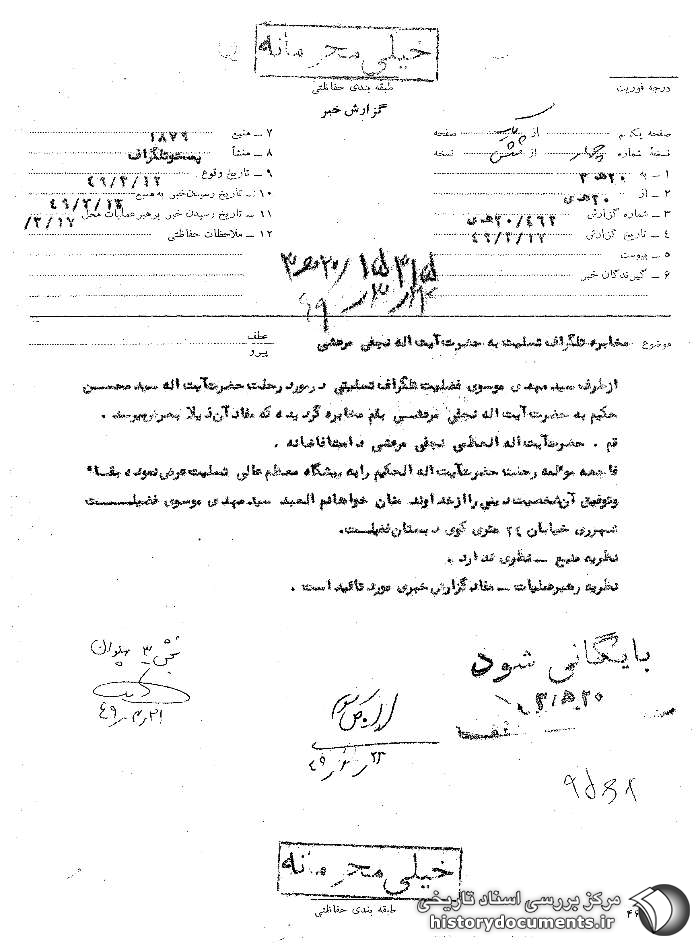 خیلی محرمانه
طبقه بندی حفاظتی
درجه فوریت
گزارش خبر
صفحه یکم از یک صفحه
نسخهٔ شماره چهار از شش نسخه
۱ ــ به ۲۰ه‍ ۳
۲ ــ از ۲۰ه‍ ی
۳ ــ شماره گزارش ۲۰/۴۶۲ه‍ ی
۴ ــ تاریخ گزارش ۴۹/۳/۱۷
۵ ــ پیوست
۶ ــ گیرندگان خبر
۷ ــ منبع ۱۸۷۹
۸ ــ منشأ پست‌وتلگراف
۹ ــ تاریخ وقوع ۴۹/۳/۱۲
۱۰ ــ تاریخ رسیدن خبر به منبع ۴۹/۳/۱۳
۱۱ ــ تاریخ رسیدن خبر به رهبر عملیات محل /۳/۱۷
۱۲ ــ ملاحظات حفاظتی
موضوع مخابره تلگراف تسلیت به حضرت آیت اله نجفی مرعشی
عطف
پیرو
ازطرف سید مهدی موسوی فضلیت تلگراف تسلیتی درمورد رحلت حضرت آیت اله سید محسن
حکیم به حضرت آیت اله نجفی مرعشی بقم مخابره گردیده که مفاد آن ذیلا بعرض میرسد .
قم . حضرت آیت اله العظمی نجفی مرعشی دامت افاضاته .
فاجعه مولمه رحلت حضرت آیت اله الحکیم رابه پیشگاه معظم عالی تسلیت عرض نموده بقاء
وتوفیق آن شخصیت دینی را از خداوند منان خواهانم العبد سید مهدی موسوی فضیلت
شهرری خیابان ۲۴ متری کوی دبستان فضیلت.
نظریه منبع ــ نظری ندارد .
نظریه رهبرعملیات ــ مفاد گزارش خبری مورد تائید است .
بایگانی شود
۳ه‍۲۰
بخش ۳
۴۹
۹۵۳۸
خیلی محرمانه
طبقه بندی حفاظتی
مرکز بررسی اسناد تاریخی
historydocuments.ir